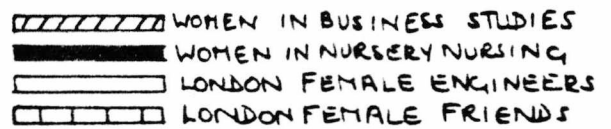 WOMEN IN BUSINESS STUDIES
WOMEN IN NURSERY NURSING
LONDON FEMALE ENGINEERS
LONDON FEMALE FRIENDS